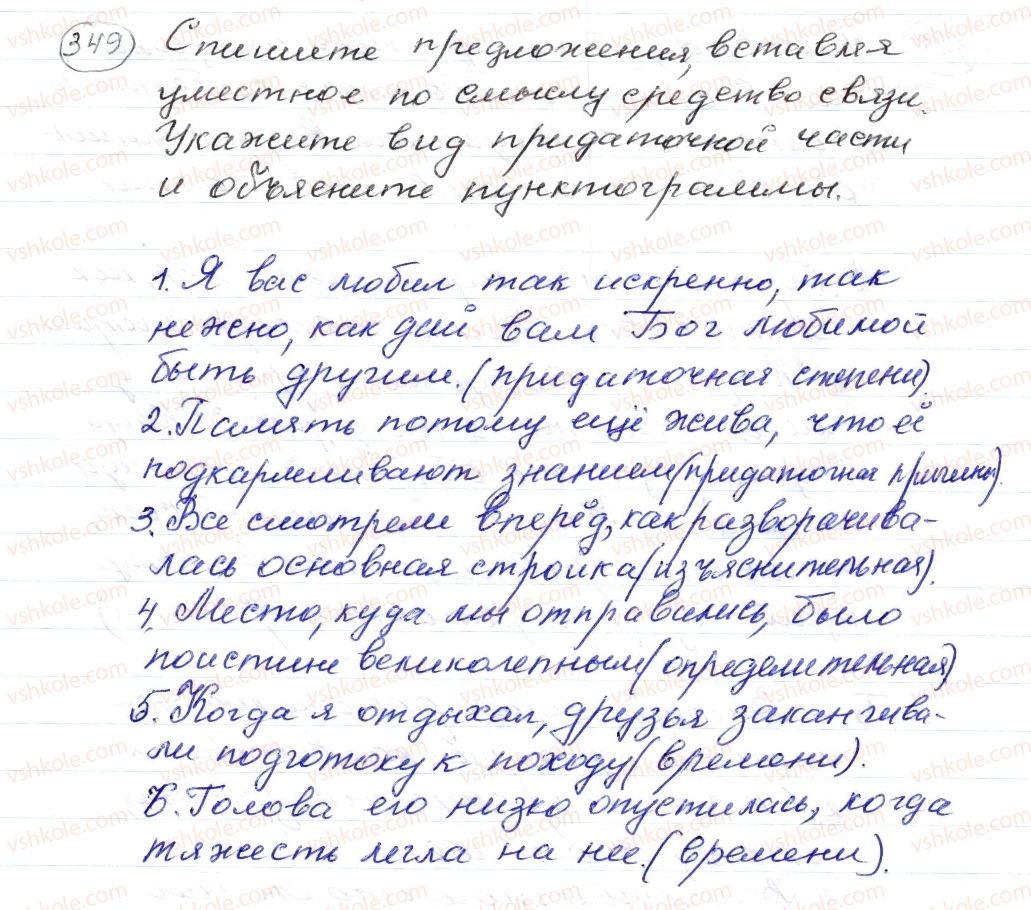 349 Спишите предложения, вставляя
уместное по смыслу средство связи.
Укажите вид придаточной части
и объясните пунктограммы.
1. Я вас любил так искренно, так
нежно, как дай вам Бог любимой
быть другим. (придаточная степени)
2. Память потому ещё жива, что её
подкармливают знанием (придаточная причины).
3. Все смотрели вперёд, как разворачива-
лась основная стройка (изъяснительная).
4. Место, куда мы отправились, было
поистине великолепным (определительная)
5. Когда я отдыхал, друзья заканчива-
ли подготоку к походу (времени).
6. Голова его низко опустилась, когда
тяжесть легла на нее. (времени).